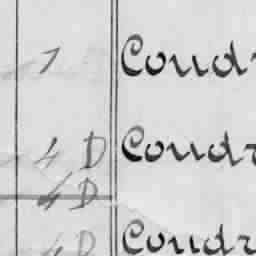 1 Coudr
4 D Coudr
4 D
4 D Coudr